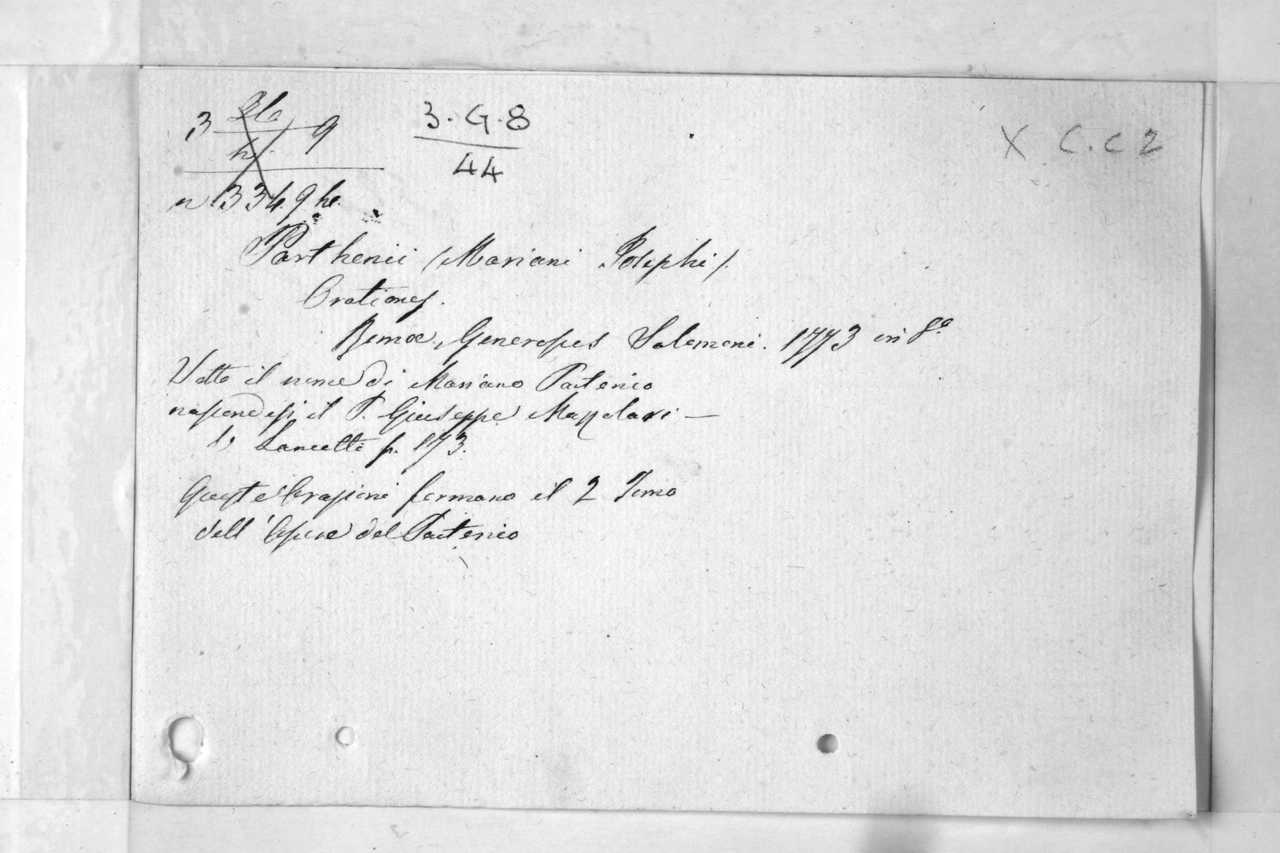 3 9
3·G·8
44
X C.C 2
n 334. 9
Parthenii (Mariani Josephi)
Orationes.
Romæ, Generosus Salomoni. 1773 in 8º
Sotto il nome di Mariano Partenio
nascondesi il P. Giuseppe Mazzolari —
V. Lancetti p. 173.
Queste Orazioni formano il 2 Tomo
dell'Opere del Partenio